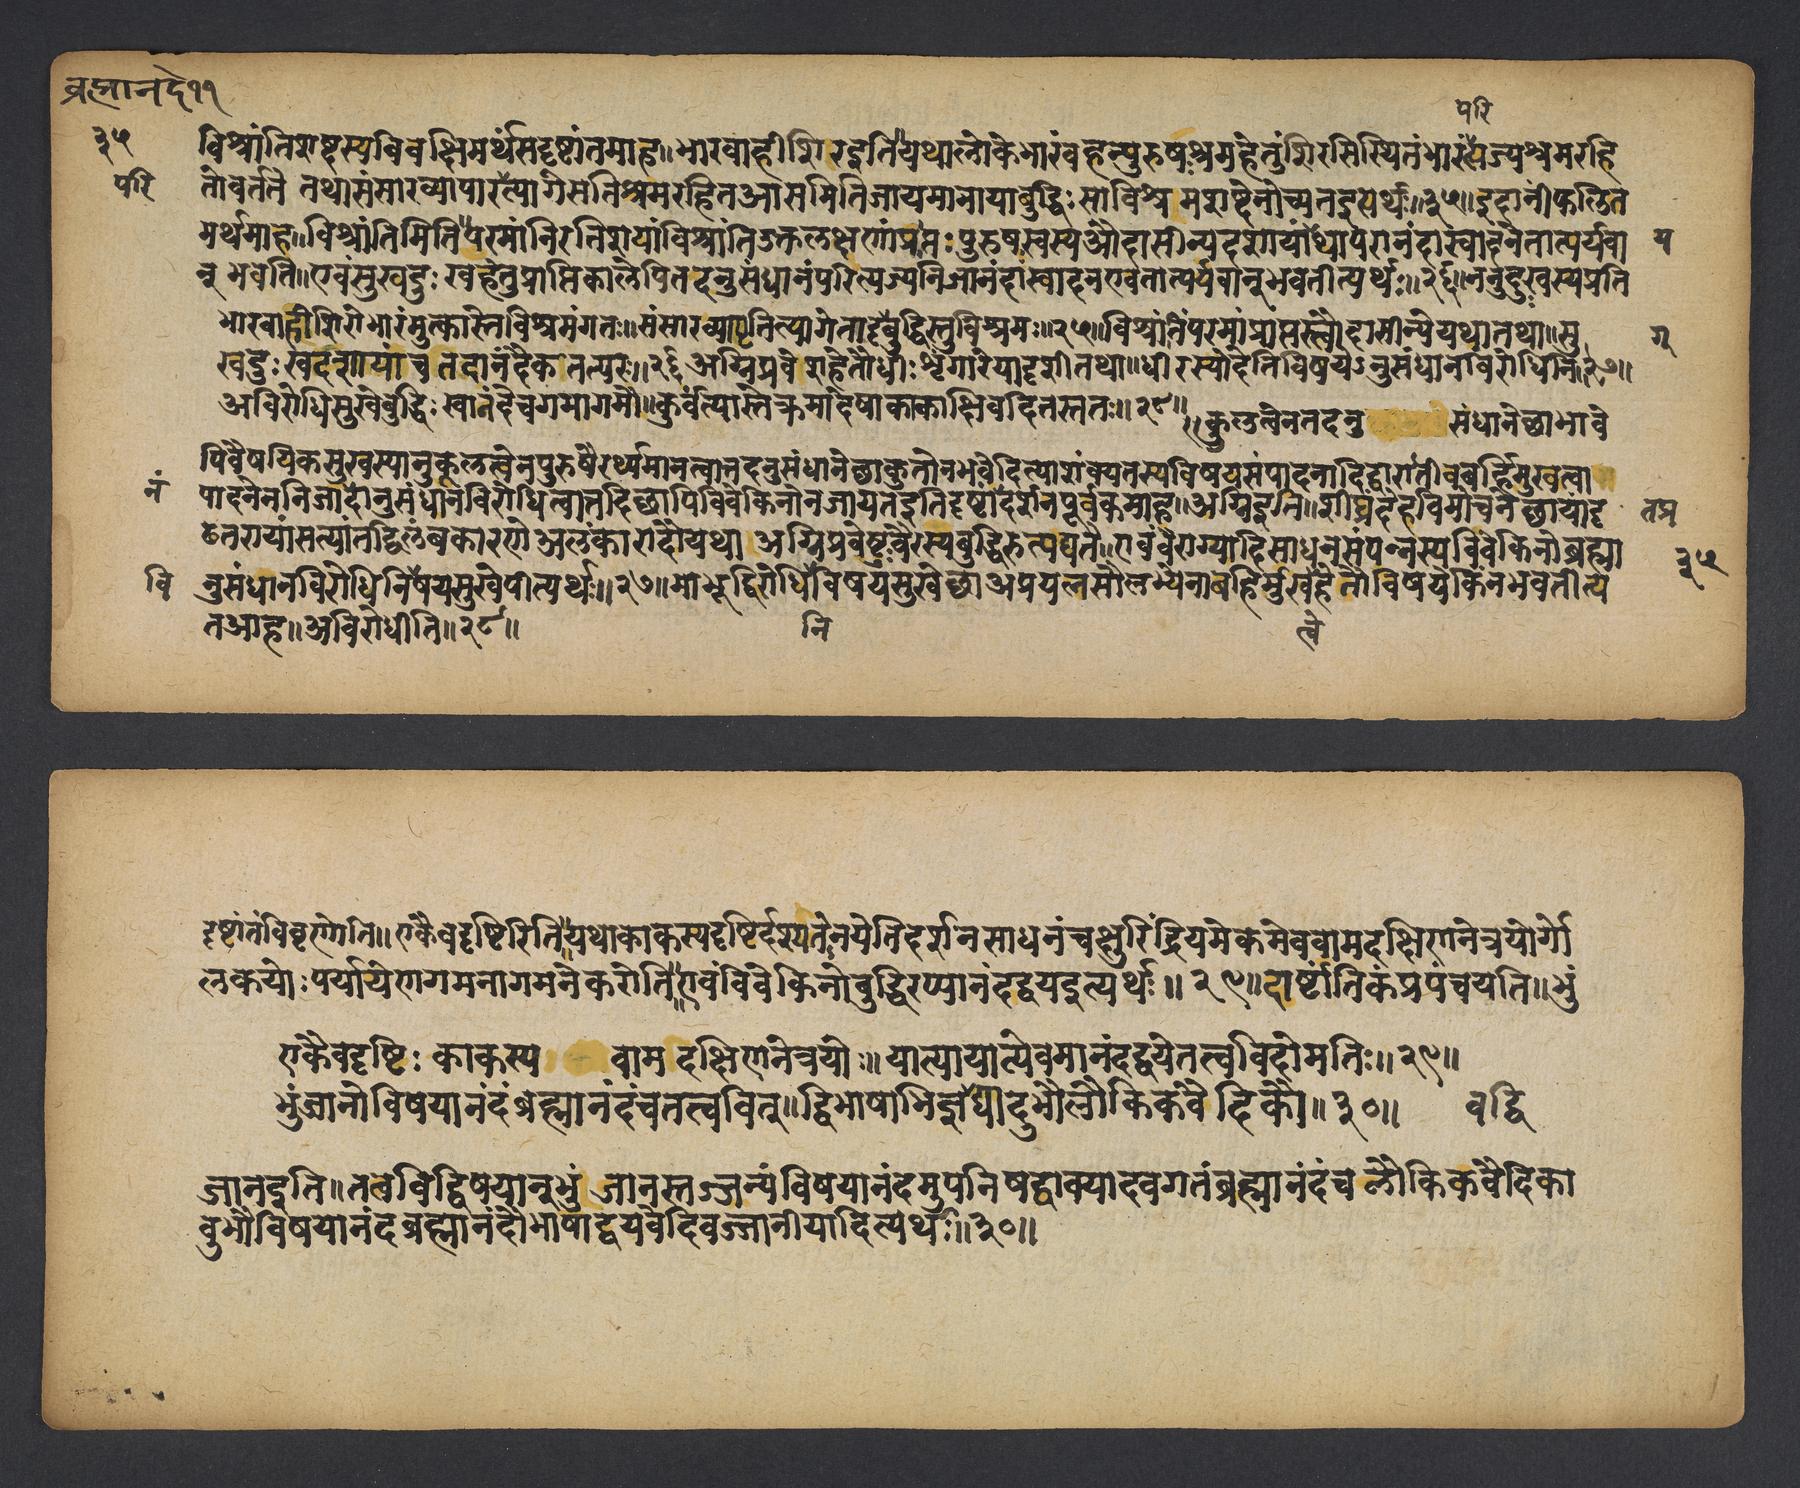 ब्रह्मानंदे११
परि
३५ विश्रांतिशब्दस्यविवक्षिमर्थंसदृष्टांतमाह॥भारवाहीशिरइति॥यथालोकेभारंवहत्पुरुषःश्रमहेतुंशिरसिस्थितंभारंत्येज्यश्रमरहि
परि तोवर्तते तथासंसारव्यापारत्यागेसतिश्रमरहितआसमितिजायमानोयाबुद्धिःसोविश्रमशब्देनोच्यतइत्यर्थः॥३५॥इदानींफलित
मर्थमाह॥विश्रांतिमिति॥परमांनिरतिशयांविश्रांतिउक्तलक्षणांप्राप्तःपुरुषःस्वस्यऔदासीन्यदशायांयथापरानंदास्वादनेतात्पर्यवा य
नुभवेति॥एवंसुखदुःखहेतुप्राप्तिकालेपितदनुसंधानंपरित्यज्यनिजानंदास्वादनएवतात्पर्यवानुभवतीत्यर्थः॥२६॥ननुदुखस्यप्रति
भारवाहीशिरोभारंमुत्कास्तेविश्रमंगतः॥संसारव्यापृतित्यागेतादृबुद्धिस्तुविश्रमः॥२५॥विश्रांतिंपरमांप्राप्तस्त्वौदासीन्येयथातथा॥सु
खदुःखदशायांच तदानंदैकतत्परः॥२६ अग्निप्रवेशहेतौधीःशृंगारेयादृशीतथा॥धीरस्योदेतिविषयेऽनुसंधानविरोधिनि॥२७॥ ग्
अविरोधिसुखेबुद्धिःस्वानंदेचगमागमौ॥कुर्वंत्यास्तेक्रमादेषाकाकाक्षिवदितस्ततः॥२८॥ कुलत्वेनतदनु संधानेछाभावे
पिवैषयिकसुखस्यानुकूलत्वेनपुरुषैरर्थ्यमानत्वात्तदनुसंधानेछाकुतोनभवेदित्याशंक्यतस्यविषयसंपादनादिद्वारातीवबर्हिमुखत्वा
नं पादनेननिजादोनुसंधानविरोधित्वात्तदिछापिविवेकिनोनजायतइतिदृष्टांदर्शनपूर्वकमाह॥अग्निइति॥शीघ्रंदेहविमोचनेछायांदृ तप्र
ढतरायांसत्यांतद्विलंबकारणेअलंकारादौयथा अग्निप्रवेष्टुःवैरस्यबुद्धिरुत्पद्यते॥एवंवैराग्यादिसाधनसंपन्नस्यविवेकिनोब्रह्मा ३५
वि नुसंधानविरोधिनिषयसुखेपीत्यर्थः॥२७॥माभूद्विरोधिविषयसुखेछाअप्रयत्नसौलभ्येनाबहिर्मुखहेतौविषयेकिंनभवतीत्ये
तआह॥अविरोधीति॥२८॥ नि त्वे
दृष्टांतंविवृणोति॥एकैवदृष्टिरिति॥यथाकाकस्यदृष्टिर्दृश्यतेनयेतिदर्शनसाधनंचक्षुरिंद्रियमेकमेववामदक्षिणनेत्रयोर्गो
लकयोःपर्यायेणगमनागमनेकरोति॥एवंविवेकिनोबुद्धिरप्यानंदद्वयइत्यर्थः॥२९॥दार्ष्टांतिकंप्रपंचयति॥भुं
एकैवदृष्टिः काकस्य वाम दक्षिणनेत्रयोः॥यात्यायात्येवमानंदद्वयेतत्त्वविदोमतिः॥२९॥
भुंजानोविषयानंदंब्रह्मानंदंचतत्त्ववित्॥द्विभाषाभिज्ञवद्विद्यादुभौलौकिकवैदिकौ॥३०॥ वद्वि
जानइति॥तत्वविद्विषयान्भुं जानस्तज्जन्यंविषयानंदमुपनिषद्वाक्यादवगतंब्रह्मानंदंच लौकिकवैदिका
वुभौविषयानंदब्रह्मानंदौभाषाद्वयवेदिवज्जानीयादित्यर्थः॥३०॥